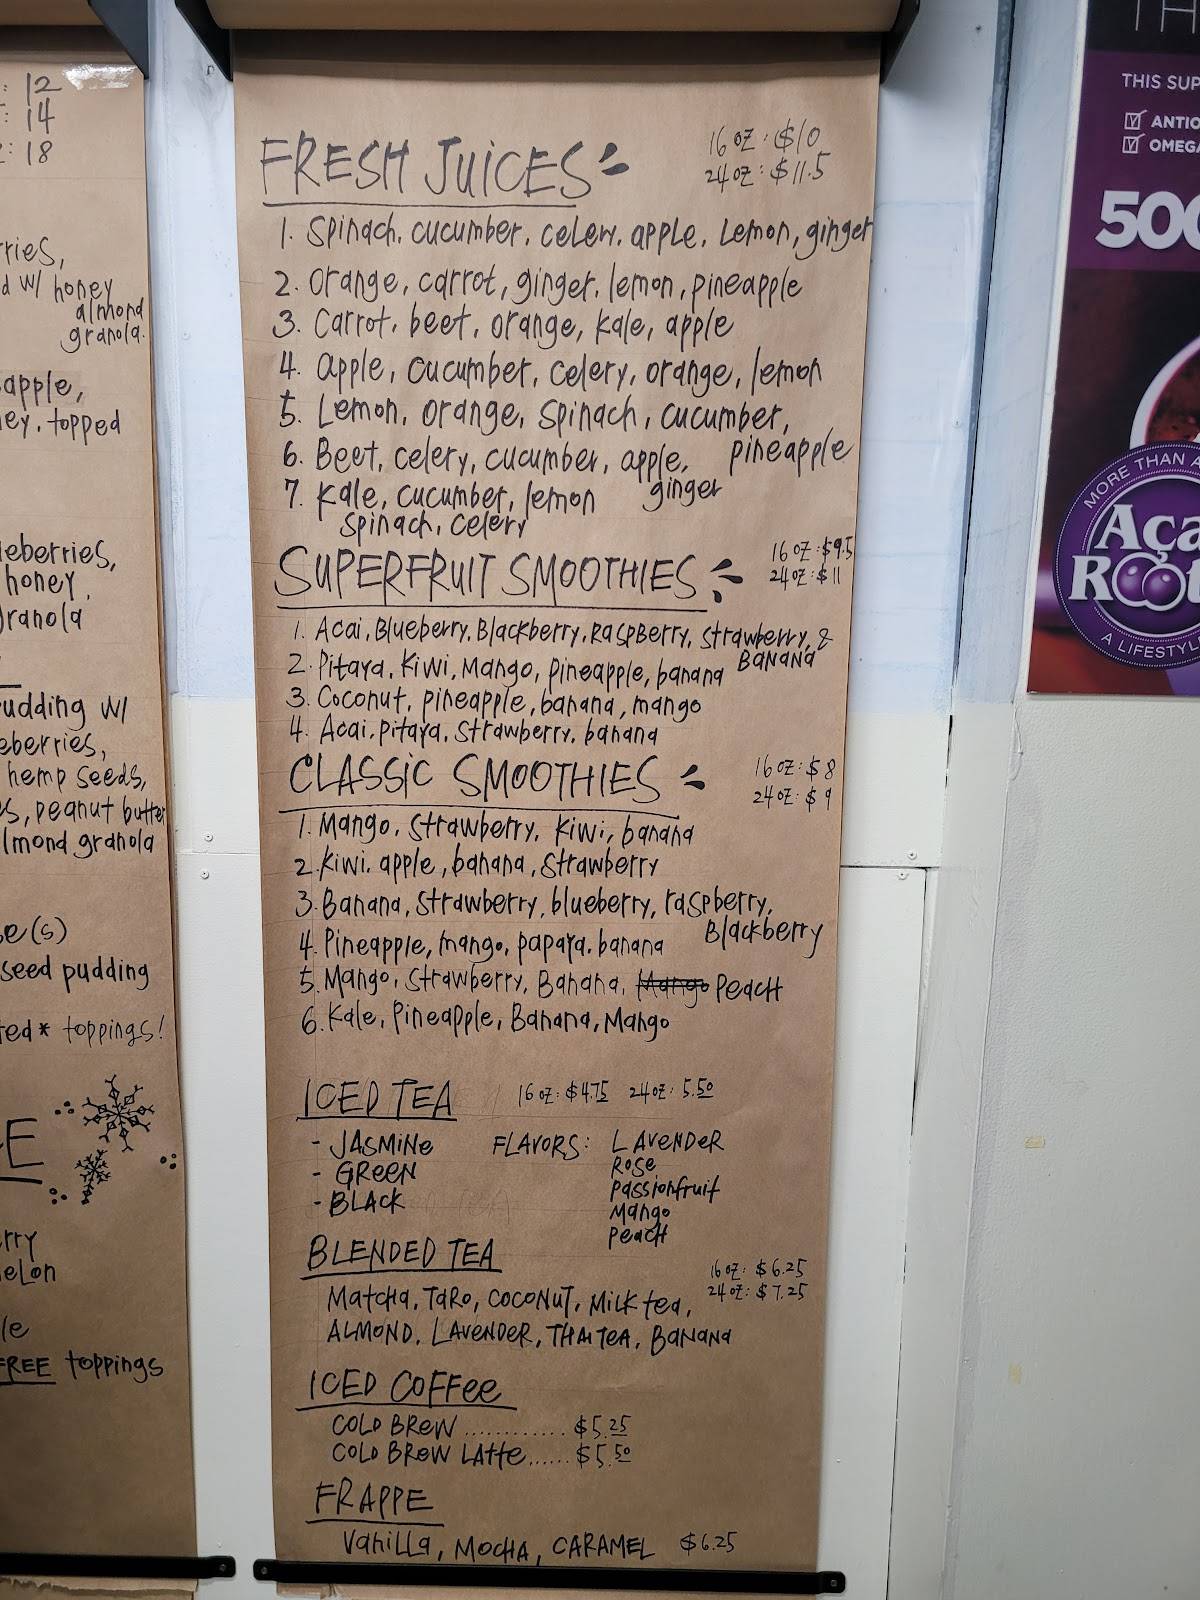 : 12
: 14
: 18
honey
almond
granola.
topped
honey,
w/
hemp seeds,
peanut butter
granola
seed pudding
toppings!
FREE toppings
FRESH JUICES
16 oz: $10
24 oz: $11.5
1. Spinach, cucumber, celery, apple, Lemon, ginger
2. Orange, carrot, ginger, lemon, pineapple
3. Carrot, beet, orange, kale, apple
4. Apple, cucumber, celery, orange, lemon
5. Lemon, orange, spinach, cucumber,
pineapple
6. Beet, celery, cucumber, apple,
ginger
7. Kale, cucumber, lemon
spinach, celery
SUPERFRUIT SMOOTHIES
16 oz: $9.5
24 oz: $11
1. Acai, Blueberry, Blackberry, Raspberry, strawberry, &
BANANA
2. Pitaya, Kiwi, Mango, pineapple, banana
3. Coconut, pineapple, banana, mango
4. Acai, pitaya, strawberry, banana
CLASSIC SMOOTHIES
16 oz: $8
24 oz: $9
1. Mango, strawberry, kiwi, banana
2. Kiwi, apple, banana, strawberry
3. Banana, strawberry, blueberry, raspberry,
Blackberry
4. Pineapple, mango, papaya, banana
5. Mango, strawberry, Banana, Mango PEACH
6. Kale, Pineapple, Banana, Mango
ICED TEA 16 oz: $4.75 24 oz: 5.50
- JASMINE
- GREEN
- BLACK
FLAVORS: LAVENDER
ROSE
Passionfruit
Mango
PEACH
BLENDED TEA
16 oz: $6.25
24 oz: $7.25
Matcha, TARO, COCONUT, MILK tea,
ALMOND, LAVENDER, THAI TEA, BANANA
ICED COFFEE
COLD BREW ............ $5.25
COLD BREW LATTE...... $5.50
FRAPPE
Vanilla, MOCHA, CARAMEL $6.25
THIS SUP
ANTIO
OMEGA
500
MORE THAN A
Aça
Root
A LIFESTYL